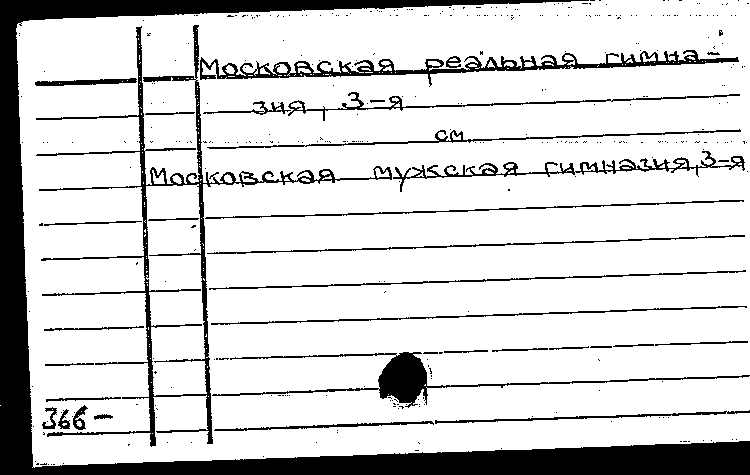 Московская реальная гимна-
зия, 3-я
см.
Московская мужская гимназия, 3-я
366-